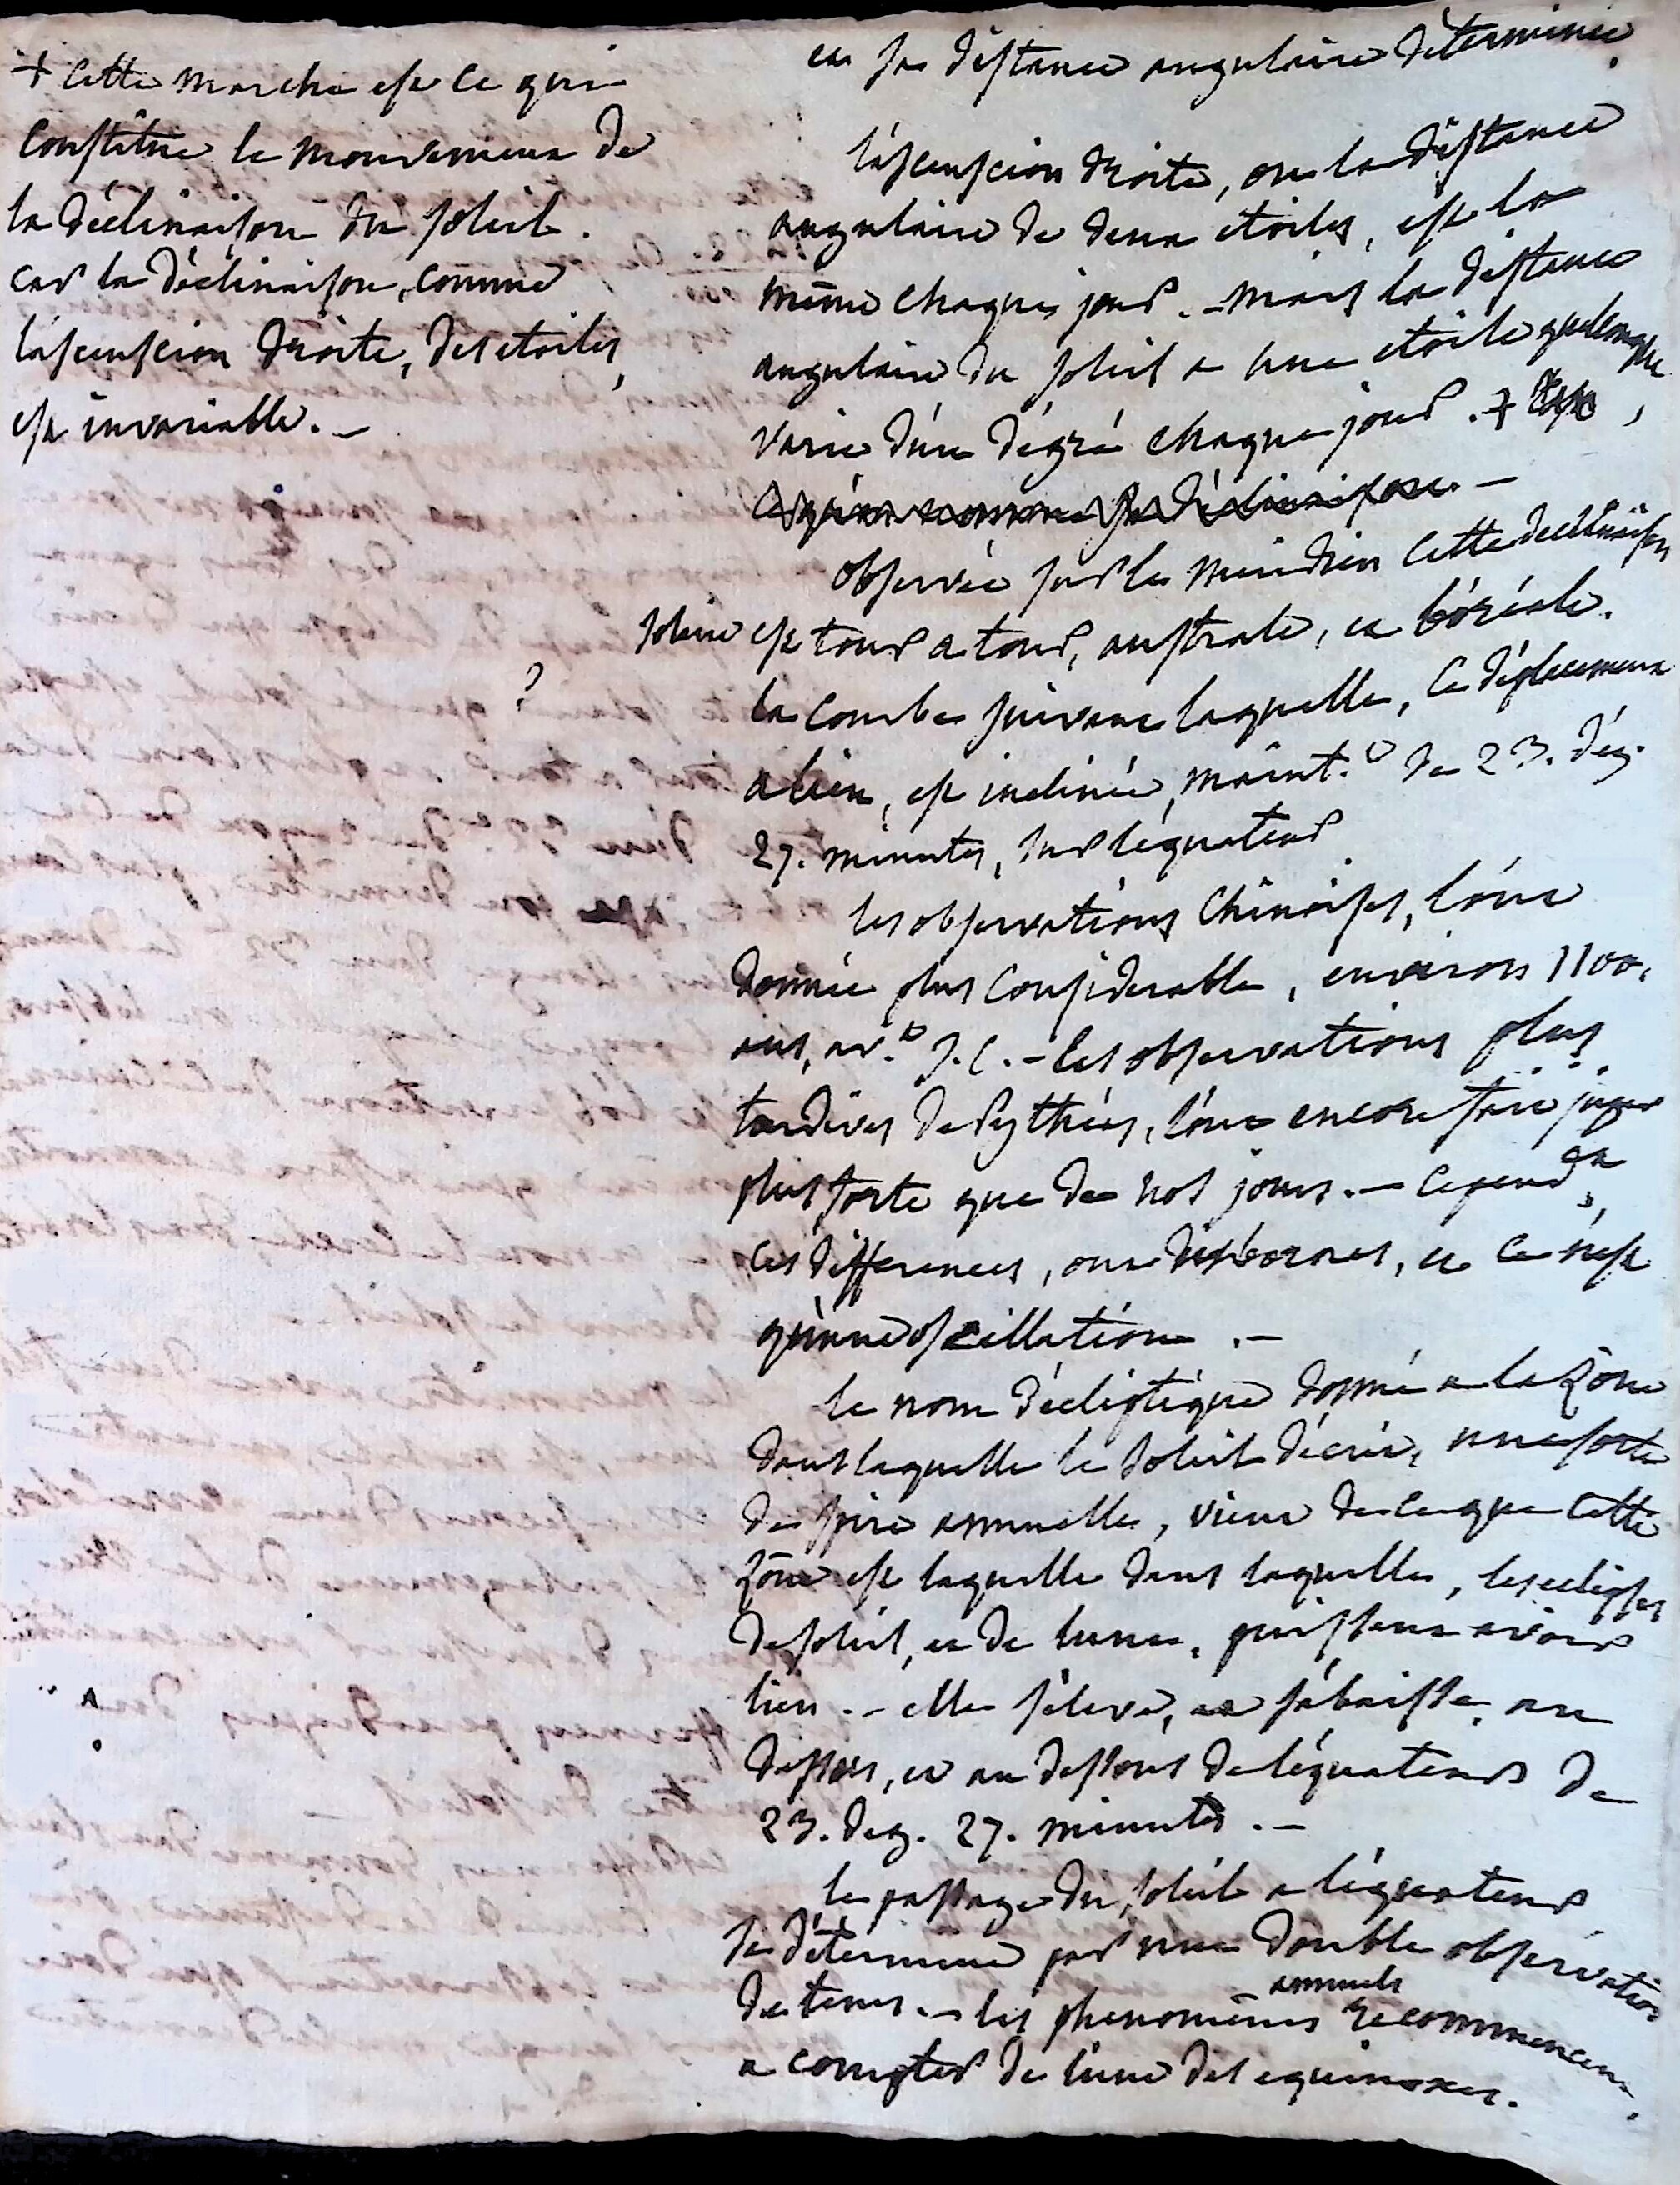 + Cette marche est ce qui
constitue le mouvement de
la déclinaison du soleil.
car la déclinaison, comme
l'ascenscion droite, des etoiles,
est invariable. –
et sa distance angulaire déterminée.
l'ascenscion droite, ou la distance
angulaire de deux etoiles, est la
même chaque jour. – mais la distance
angulaire du soleil a une etoile quelconque
varie d'un dégré chaque jour. +
ce qu'on nomme sa déclinaison. –
observée sur le meridien cette declinaison
solaire est tour a tour, australe, et boréale.
?
la courbe suivant laquelle, ce déplacement
a lieu, est inclinée, maint.t de 23. dég.
27. minutes, sur l'équateur
les observations Chinoises, l'ont
donnée plus considerable, environ 1100.
ans, av.t J.C. – les observations plus
tardives de Pythéas, l'ont encore fait juger
plus forte que de nos jours. – cepend.nt
ces differences, ont des bornes, et ce n'est
qu'une oscillation. –
le nom d'écliptique donné a la zône
dans laquelle le soleil décrit, une sorte
de spire annuelle, vient de ce que cette
zône est laquelle dans laquelle, les eclipses
de soleil, et de lune, puissent avoir
lieu. – elle s'eleve, et s'abaisse, au
dessus, et au dessous de l'équateur de
23. deg. 27. minutes. –
le passage du soleil a l'équateur
se détermine par une double observation
de tems. – les phenomènes annuels recommencent,
a compter de l'un des equinoxes.